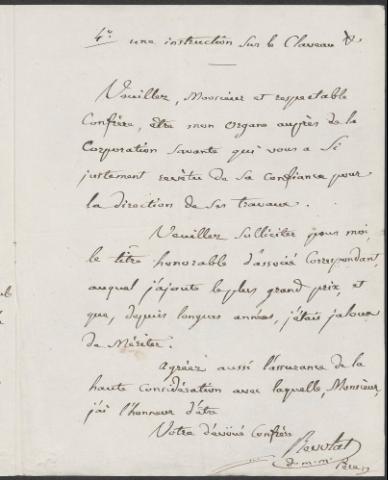 4° une instruction sur le Claveau &
Veuillez, Monsieur et respectable
Confrère, être mon organe auprès de la
Corporation savante qui vous a si
justement revêtu de sa confiance pour
la direction de ses travaux.
Veuillez solliciter pour moi,
le titre honorable d'associé correspondant,
auquel j'ajoute le plus grand prix, et
que, depuis longues années, j'étais jaloux
de Mériter.
Agréez aussi l'assurance de la
haute considération avec laquelle, Monsieur,
j'ai l'honneur d'être
Votre dévoué Confrère
d. m. m.